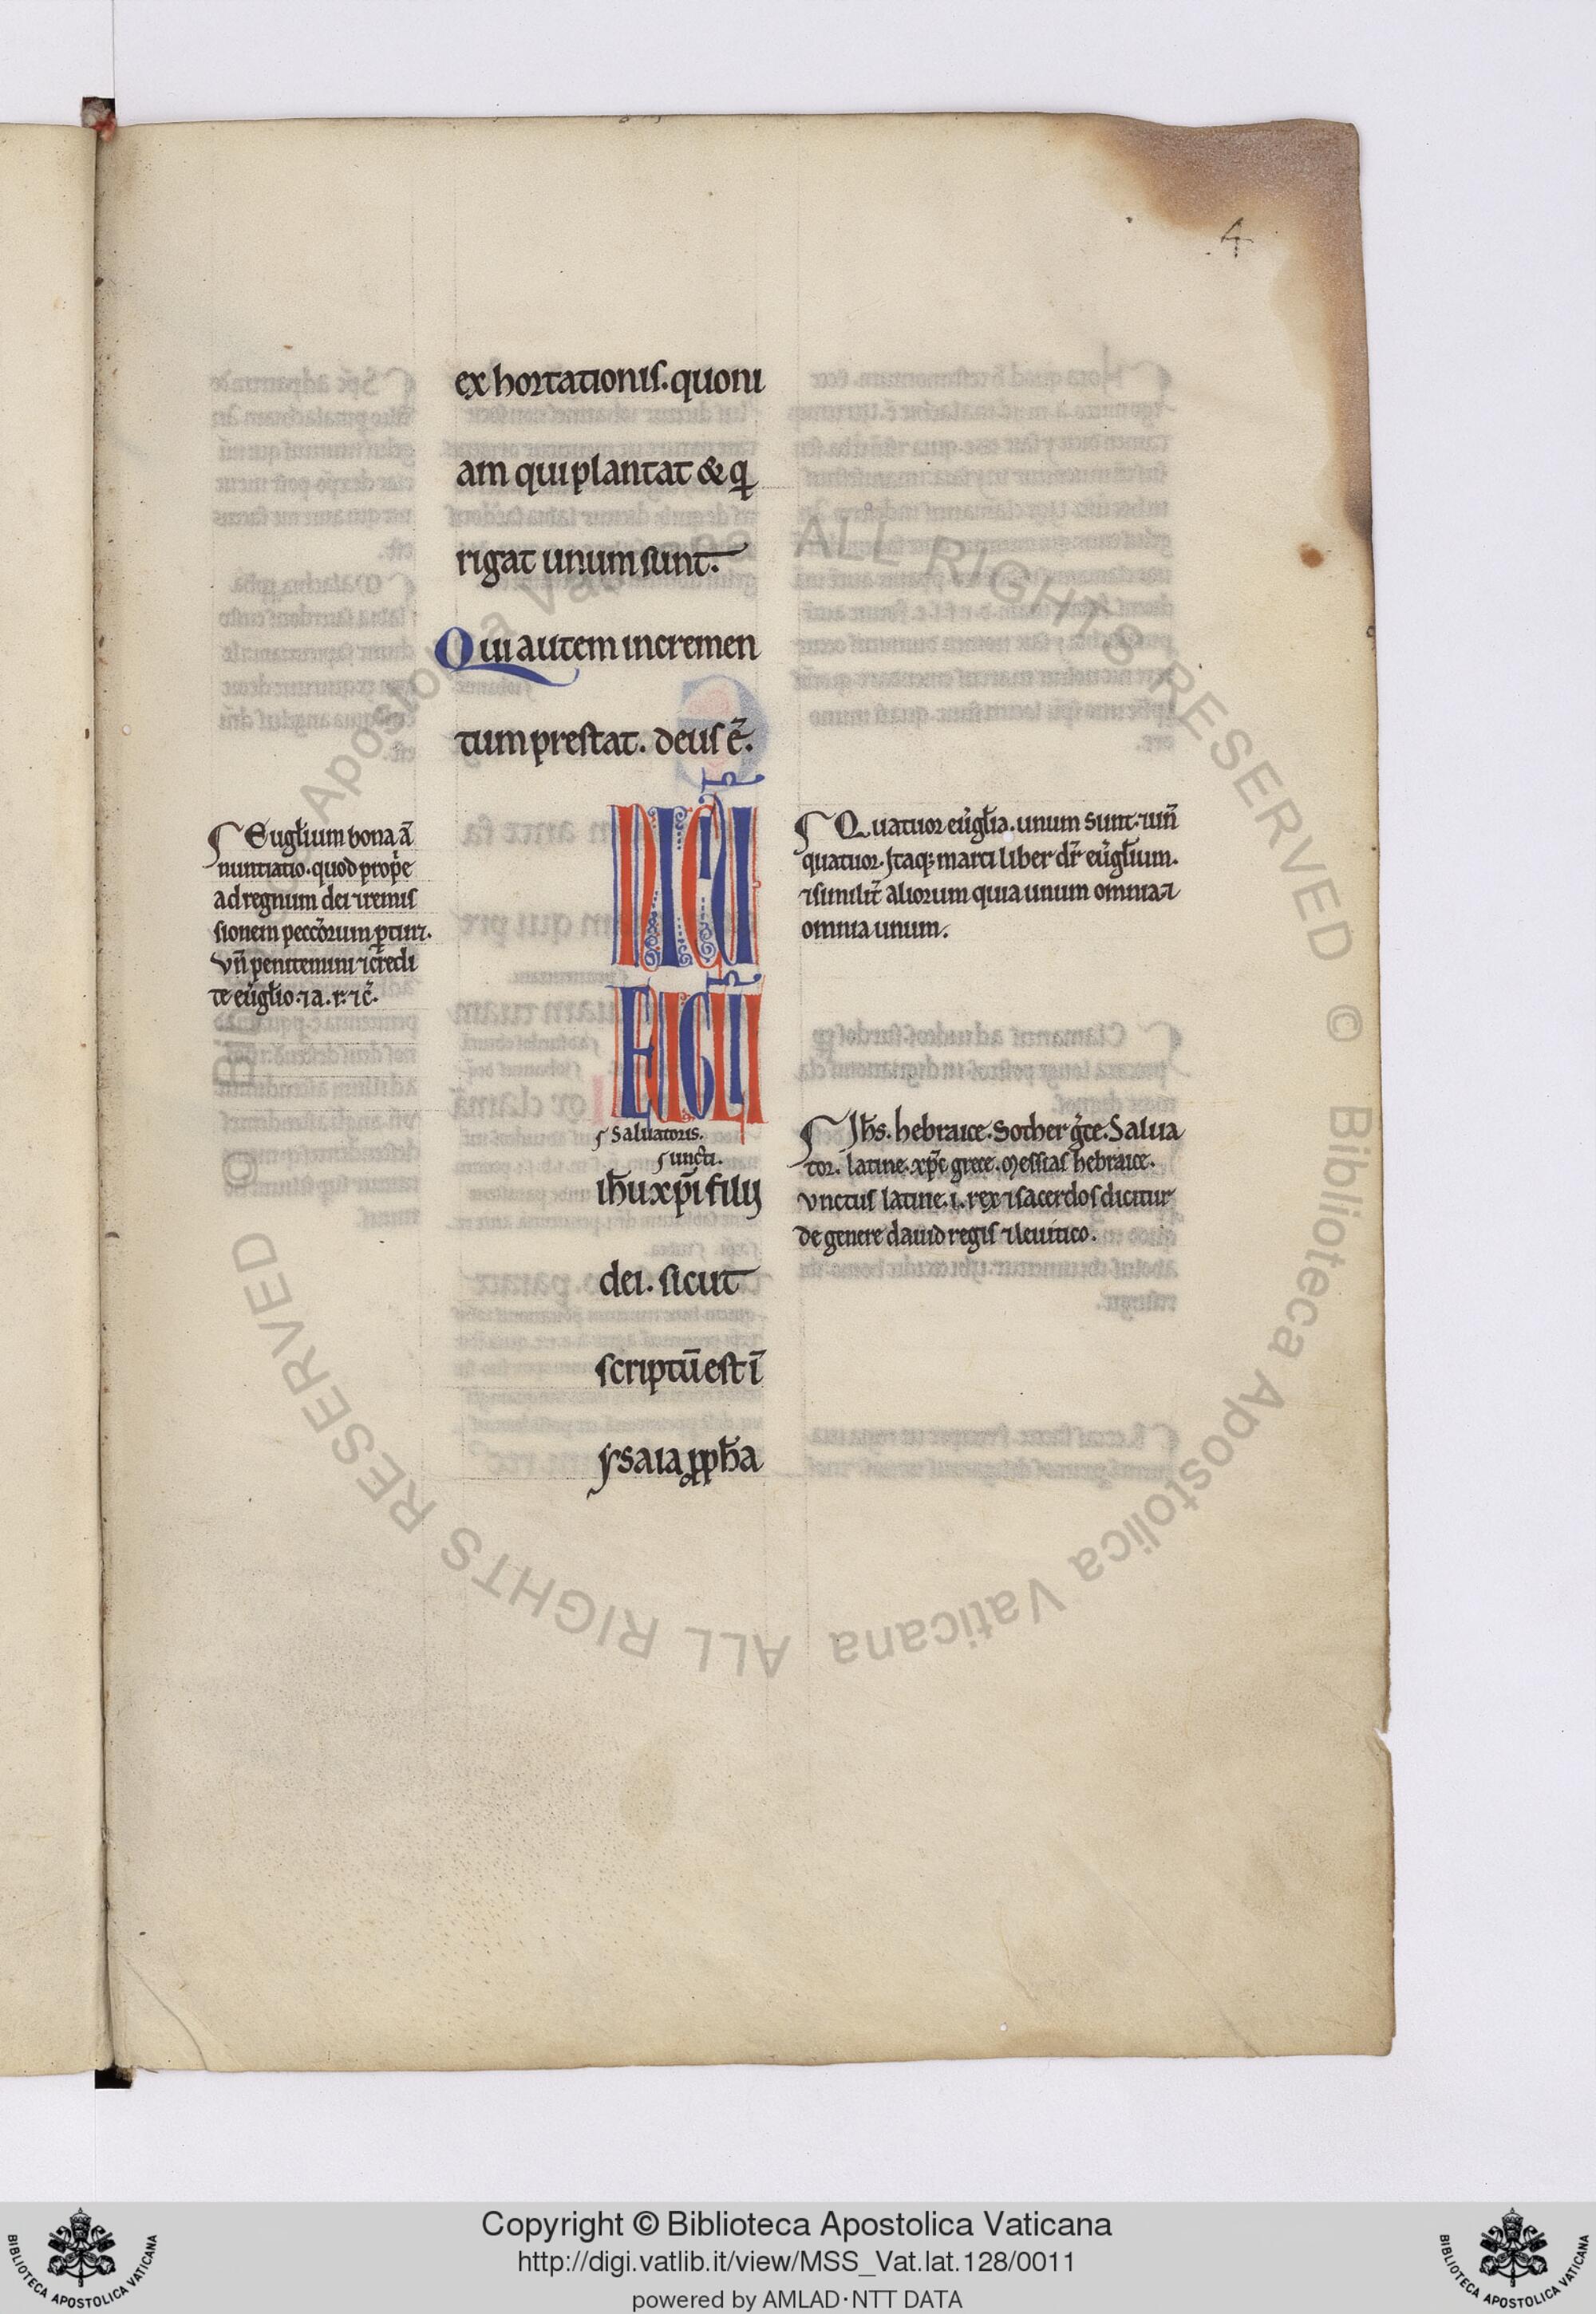 4
exhortationis. quoni
am qui plantat & q̄
rigat unum sunt.
Qui autem incremen
tum prestat. deus ē.
¶ Euglium bona ā
nuntiatio. quod prop̄e
ad regnum dei ⁊ remis
sionem peccōrum ꝑtin̄.
Vn̄ penitemini ⁊ credi
te eūglio. ⁊ a. r. ⁊ c̄.
¶ Quatuor eūglia. unum sunt. ⁊ un̄
quatuor. Itaq; marci liber dr̄ eūglium.
⁊ similit̄ aliorum quia unum omnia ⁊
omnia unum.
INICIU
EUGLII
Saluatoris.
uncti.
ih̄u xp̄i filij
dei. sicut
scriptū est ī
ysaia ꝓph̄a
¶ Ih̄s. hebraice. Sother ḡce. Salua
tor. latine. xp̄c grece. Messias hebraice.
Vnctus latine. i. rex ⁊ sacerdos dicitur
de genere dauid regis ⁊ leuitico.
© Biblioteca Apostolica Vaticana ALL RIGHTS RESERVED © Biblioteca Apostolica Vaticana ALL RIGHTS RESERVED
Copyright © Biblioteca Apostolica Vaticana
http://digi.vatlib.it/view/MSS_Vat.lat.128/0011
powered by AMLAD·NTT DATA
BIBLIOTECA APOSTOLICA VATICANA
BIBLIOTECA APOSTOLICA VATICANA